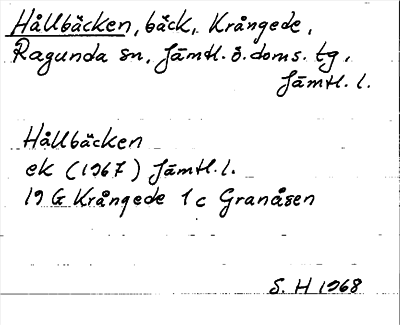 Hållbäcken, bäck, Krångede,
Ragunda sn, Jämtl. ö. doms. tg,
Jämtl. l.
Hållbäcken
ek (1967) Jämtl. l.
19 G Krångede 1 c Granåsen
S. H 1968